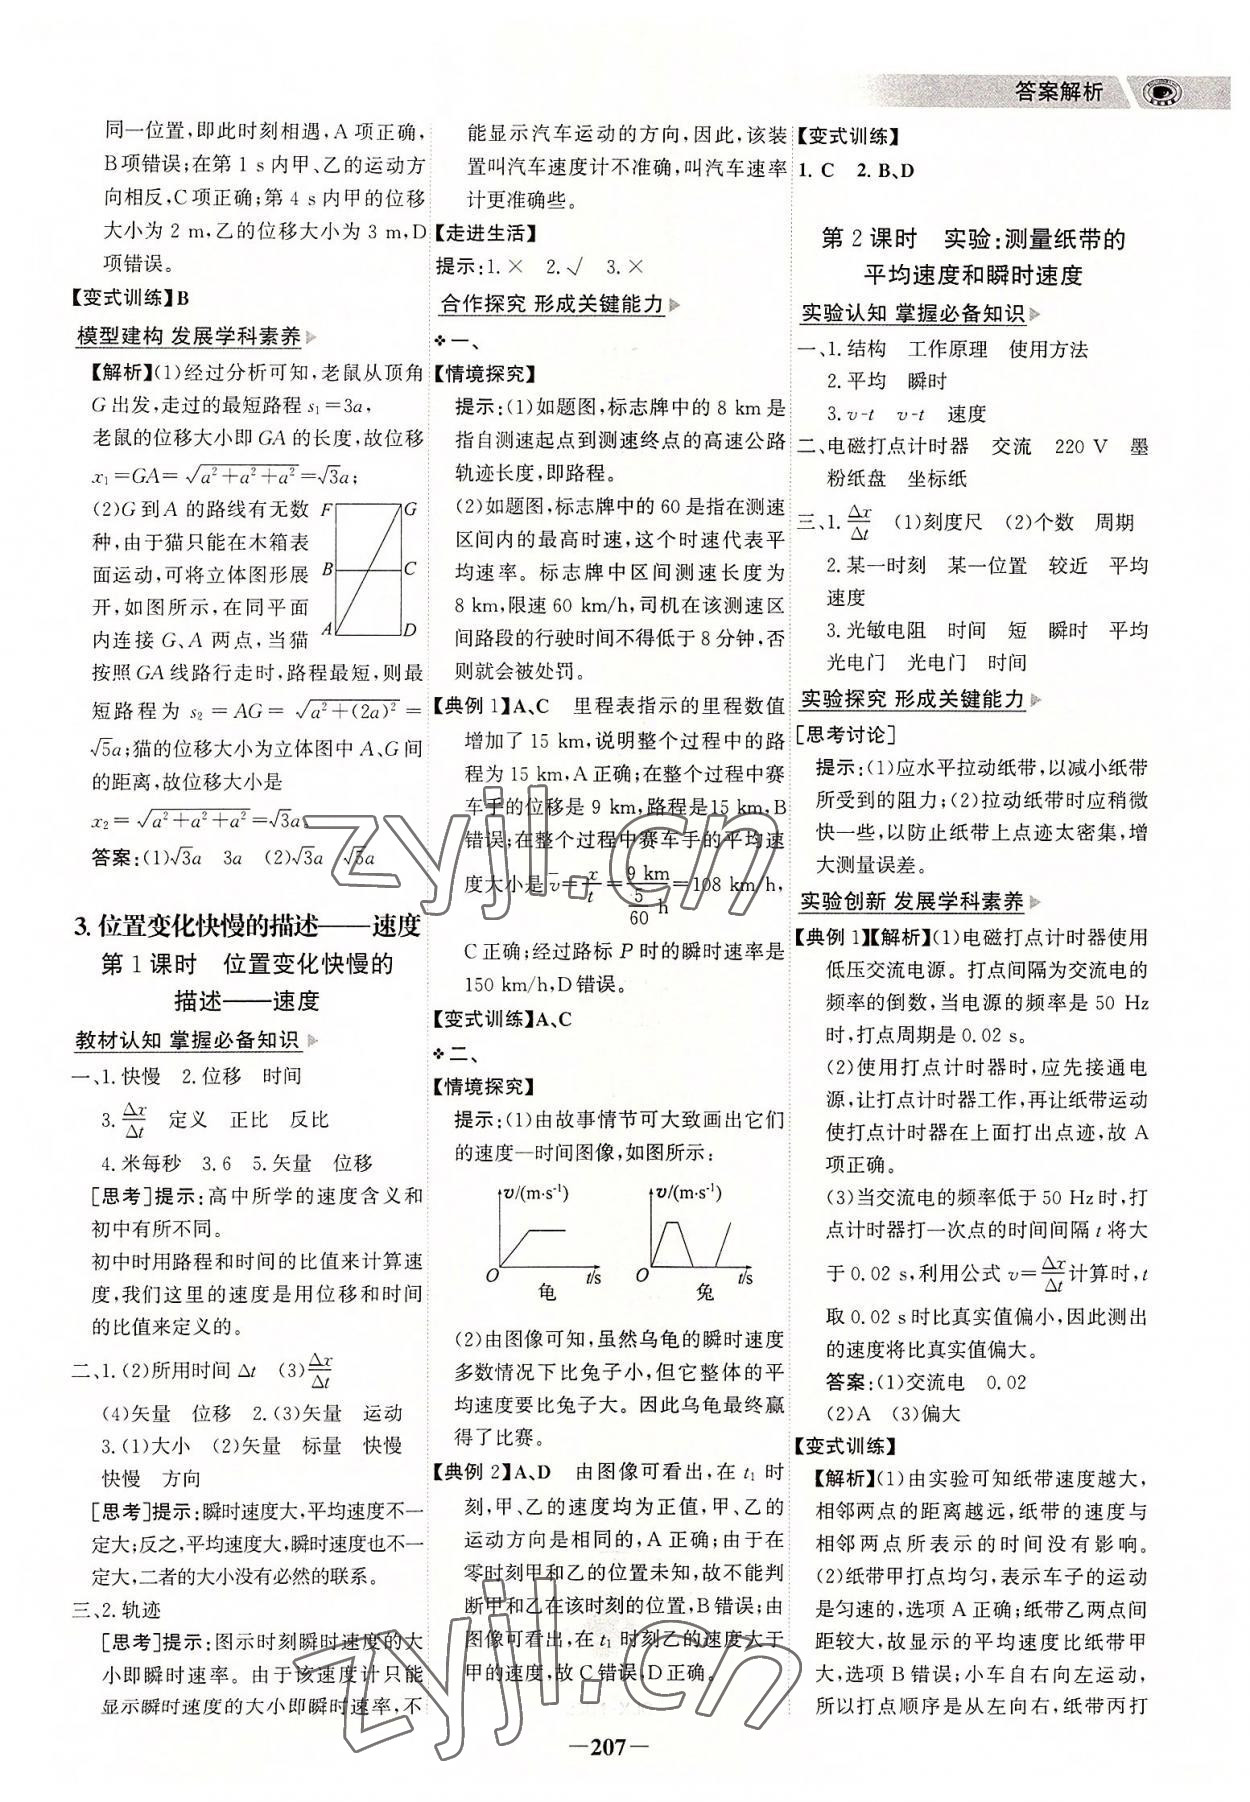 答案解析
同一位置,即此时刻相遇,A 项正确,
B项错误;在第 1 s 内甲、乙的运动方
向相反,C项正确;第 4 s 内甲的位移
大小为 2 m,乙的位移大小为 3 m,D
项错误。
【变式训练】B
模型建构 发展学科素养
【解析】(1)经过分析可知,老鼠从顶角
G出发,走过的最短路程 s₁=3a,
老鼠的位移大小即GA的长度,故位移
x₁=GA=√(a²+a²+a²)=√3a;
(2)G到A的路线有无数
种,由于猫只能在木箱表
面运动,可将立体图形展
开,如图所示,在同平面
内连接 G、A 两点,当猫
F G
B C
A D
按照GA线路行走时,路程最短,则最
短路程为 s₂ = AG = √(a²+(2a)²) =
√5a;猫的位移大小为立体图中A、G间
的距离,故位移大小是
x₂=√(a²+a²+a²)=√3a。
答案:(1)√3a 3a (2)√3a √5a
3. 位置变化快慢的描述——速度
第 1 课时 位置变化快慢的
描述——速度
教材认知 掌握必备知识
一、1.快慢 2.位移 时间
3. Δx/Δt 定义 正比 反比
4.米每秒 3.6 5.矢量 位移
[思考]提示:高中所学的速度含义和
初中有所不同。
初中时用路程和时间的比值来计算速
度,我们这里的速度是用位移和时间
的比值来定义的。
二、1.(2)所用时间 Δt (3)Δx/Δt
(4)矢量 位移 2.(3)矢量 运动
3.(1)大小 (2)矢量 标量 快慢
快慢 方向
[思考]提示:瞬时速度大,平均速度不一
定大;反之,平均速度大,瞬时速度也不一
定大,二者的大小没有必然的联系。
三、2.轨迹
[思考]提示:图示时刻瞬时速度的大
小即瞬时速率。由于该速度计只能
显示瞬时速度的大小即瞬时速率,不
能显示汽车运动的方向,因此,该装
置叫汽车速度计不准确,叫汽车速率
计更准确些。
【走进生活】
提示:1.× 2.√ 3.×
合作探究 形成关键能力
一、
【情境探究】
提示:(1)如题图,标志牌中的 8 km是
指自测速起点到测速终点的高速公路
轨迹长度,即路程。
(2)如题图,标志牌中的60是指在测速
区间内的最高时速,这个时速代表平
均速率。标志牌中区间测速长度为
8 km,限速60 km/h,司机在该测速区
间路段的行驶时间不得低于8分钟,否
则就会被处罚。
【典例 1】A、C 里程表指示的里程数值
增加了 15 km,说明整个过程中的路
程为15 km,A正确;在整个过程中赛
车手的位移是 9 km,路程是15 km,B
错误;在整个过程中赛车手的平均速
度大小是 v̄ = x/t = 9 km/(5/60 h) =108 km/h,
C正确;经过路标 P 时的瞬时速率是
150 km/h,D错误。
【变式训练】A、C
二、
【情境探究】
提示:(1)由故事情节可大致画出它们
的速度—时间图像,如图所示:
v/(m·s⁻¹) v/(m·s⁻¹)
O t/s O t/s
龟 兔
(2)由图像可知,虽然乌龟的瞬时速度
多数情况下比兔子小,但它整体的平
均速度要比兔子大。因此乌龟最终赢
得了比赛。
【典例 2】A、D 由图像可看出,在 t₁ 时
刻,甲、乙的速度均为正值,甲、乙的
运动方向是相同的,A 正确;由于在
零时刻甲和乙的位置未知,故不能判
断甲和乙在该时刻的位置,B错误;由
图像可看出,在 t₁ 时刻乙的速度大于
甲的速度,故C错误,D正确。
【变式训练】
1. C 2. B、D
第 2 课时 实验:测量纸带的
平均速度和瞬时速度
实验认知 掌握必备知识
一、1.结构 工作原理 使用方法
2.平均 瞬时
3. v-t v-t 速度
二、电磁打点计时器 交流 220 V 墨
粉纸盘 坐标纸
三、1. Δx/Δt (1)刻度尺 (2)个数 周期
2.某一时刻 某一位置 较近 平均
速度
3.光敏电阻 时间 短 瞬时 平均
光电门 光电门 时间
实验探究 形成关键能力
[思考讨论]
提示:(1)应水平拉动纸带,以减小纸带
所受到的阻力;(2)拉动纸带时应稍微
快一些,以防止纸带上点迹太密集,增
大测量误差。
实验创新 发展学科素养
【典例 1】【解析】(1)电磁打点计时器使用
低压交流电源。打点间隔为交流电的
频率的倒数,当电源的频率是 50 Hz
时,打点周期是0.02 s。
(2)使用打点计时器时,应先接通电
源,让打点计时器工作,再让纸带运动
使打点计时器在上面打出点迹,故 A
项正确。
(3)当交流电的频率低于50 Hz时,打
点计时器打一次点的时间间隔 t 将大
于 0.02 s,利用公式 v=Δx/Δt计算时,t
取 0.02 s时比真实值偏小,因此测出
的速度将比真实值偏大。
答案:(1)交流电 0.02
(2)A (3)偏大
【变式训练】
【解析】(1)由实验可知纸带速度越大,
相邻两点的距离越远,纸带的速度与
相邻两点所表示的时间没有影响。
(2)纸带甲打点均匀,表示车子的运动
是匀速的,选项 A 正确;纸带乙两点间
距较大,故显示的平均速度比纸带甲
大,选项 B 错误;小车自右向左运动,
所以打点顺序是从左向右,纸带丙打
zyjl.cn
zyjl.cn
—207—